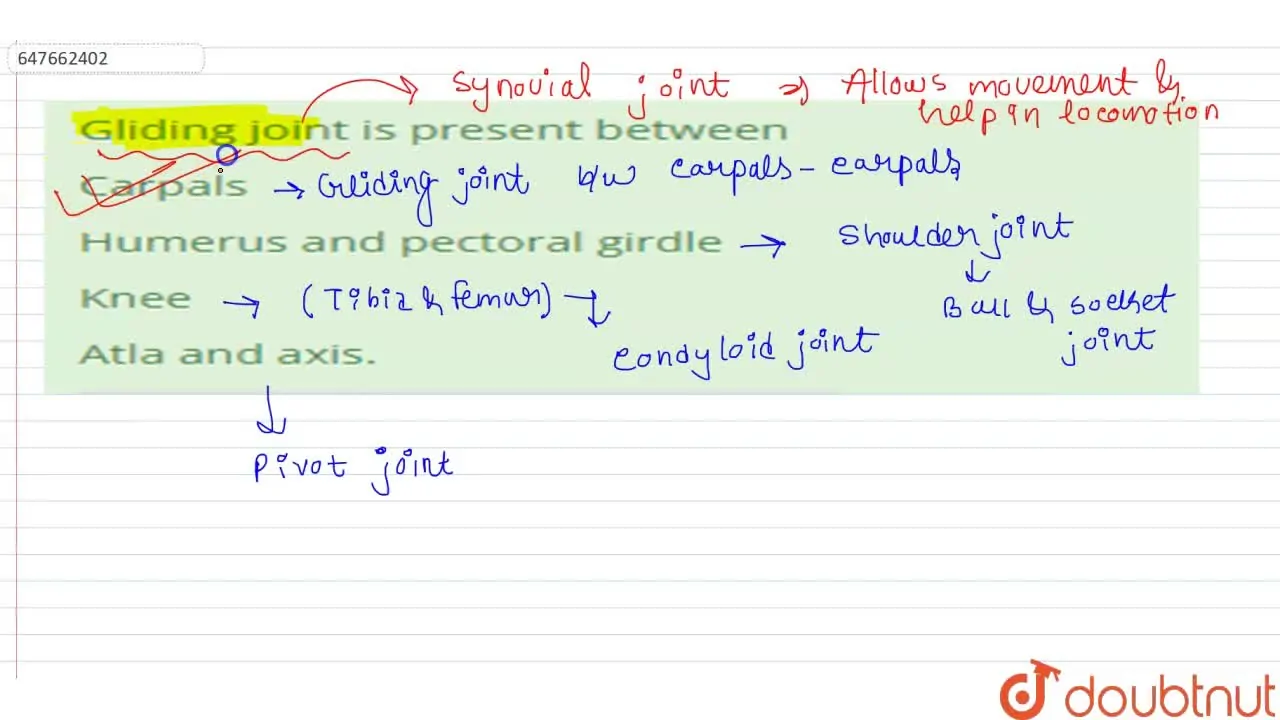 647662402
Synovial joint ⇒ Allows movement &
help in locomotion
Gliding joint is present between
Carpals → Gliding joint b/w carpals - carpals
Humerus and pectoral girdle → Shoulder joint
↓
Ball & socket
joint
Knee → (Tibia & femur) →
condyloid joint
Atla and axis.
↓
Pivot joint
doubtnut